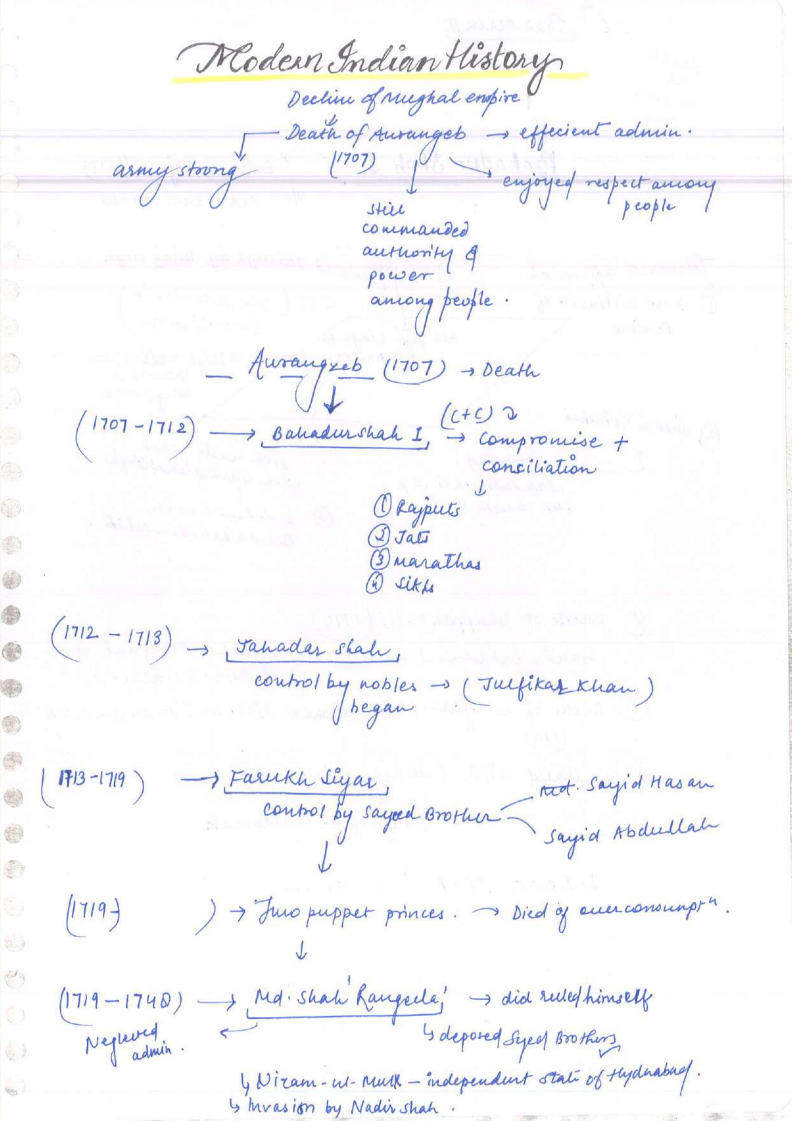 Modern Indian History
Decline of Mughal empire
Death of Aurangeb → effecient admin.
(1707)
army strong
enjoyed respect among
people
still
commanded
authority &
power
among people.
Aurangzeb (1707) → Death
(1707-1712) → Bahadurshah I → (C+C)
Compromise +
consiliation
① Rajputs
② Jats
③ Marathas
④ Sikhs
(1712 - 1713) → Jahadar Shah
control by nobles → (Julfikar Khan)
began
(1713-1719) → Farukh Siyar
control by Sayeed Brother
Md. Sayid Hasan
Sayid Abdullah
(1719- ) → Two puppet princes. → Died of overconsumptn.
(1719-1748) → Md. Shah 'Rangeela' → did ruled himself
Negleved
admin.
↳ deposed Syed Brothers
↳ Nizam-ul-Mulk - independent state of Hydrabad.
↳ Invasion by Nadir shah.